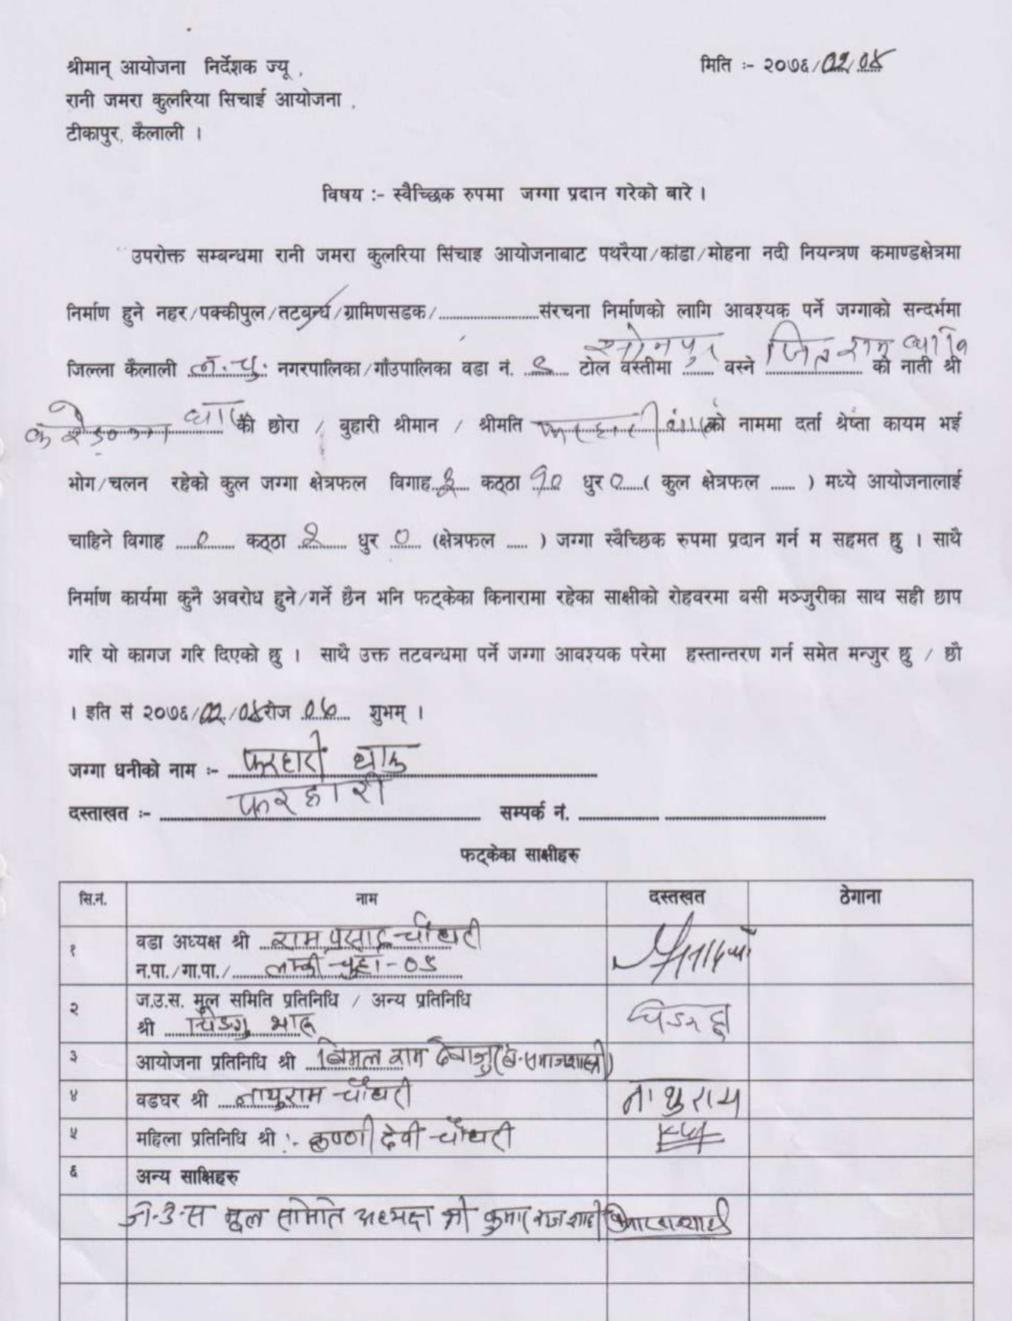 श्रीमान् आयोजना निर्देशक ज्यू , मिति :- २०७६/02/04
रानी जमरा कुलरिया सिचाई आयोजना ,
टीकापुर, कैलाली ।
विषय :- स्वैच्छिक रुपमा जग्गा प्रदान गरेको बारे ।
उपरोक्त सम्बन्धमा रानी जमरा कुलरिया सिंचाइ आयोजनाबाट पथरैया/कांडा/मोहना नदी नियन्त्रण कमाण्डक्षेत्रमा
निर्माण हुने नहर/पक्कीपुल/तटबन्ध/ग्रामिणसडक/....................संरचना निर्माणको लागि आवश्यक पर्ने जग्गाको सन्दर्भमा
जिल्ला कैलाली ल.चु. नगरपालिका/गाँउपालिका वडा नं. टोल वस्तीमा वस्ने को नाती श्री
की छोरा / बुहारी श्रीमान / श्रीमति को नाममा दर्ता श्रेष्ता कायम भई
भोग/चलन रहेको कुल जग्गा क्षेत्रफल विगाह कठ्ठा १० धुर ०.....( कुल क्षेत्रफल ...... ) मध्ये आयोजनालाई
चाहिने विगाह ० कठ्ठा २ धुर ० (क्षेत्रफल ..... ) जग्गा स्वैच्छिक रुपमा प्रदान गर्न म सहमत छु । साथै
निर्माण कार्यमा कुनै अवरोध हुने/गर्ने छैन भनि फट्केका किनारामा रहेका साक्षीको रोहवरमा वसी मञ्जुरीका साथ सही छाप
गरि यो कागज गरि दिएको छु । साथै उक्त तटवन्धमा पर्ने जग्गा आवश्यक परेमा हस्तान्तरण गर्न समेत मन्जुर छु / छौ
। इति सं २०७६/02/04 रोज शुभम् ।
जग्गा धनीको नाम :- फरहारी थारु
दस्ताखत :- फरहारी सम्पर्क नं. ............... ..............................
फट्केका साक्षीहरु
सि.नं. नाम दस्तखत ठेगाना
१ वडा अध्यक्ष श्री राम प्रसाद चौधरी
न.पा./गा.पा./ लम्की चुहा-
२ ज.उ.स. मूल समिति प्रतिनिधि / अन्य प्रतिनिधि
श्री
३ आयोजना प्रतिनिधि श्री बिमल राम
४ वडघर श्री नाथुराम चौधरी नाथुराम
५ महिला प्रतिनिधि श्री :- कृष्णी देवी चौधरी
६ अन्य साक्षिहरु
ज.उ.स मूल समिति अध्यक्ष श्री कुमार राज शाही